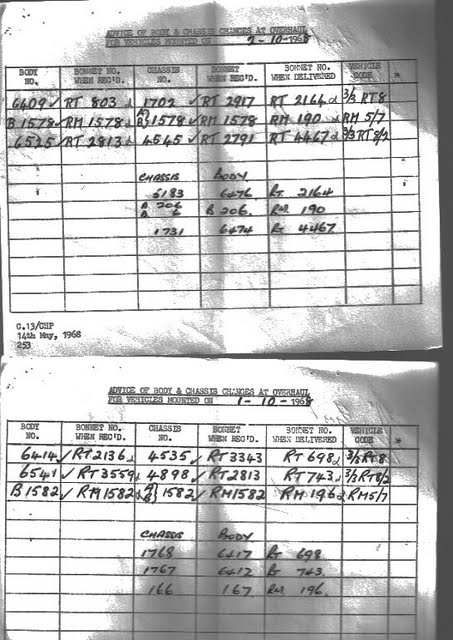 ADVICE OF BODY & CHASSIS CHANGES AT OVERHAUL
FOR VEHICLES MOUNTED ON 2-10-1968
BODY NO. BONNET NO. WHEN REC'D. CHASSIS NO. BONNET WHEN REC'D. BONNET NO. WHEN DELIVERED VEHICLE CODE
6409 ✓ RT 803 1702 ✓ RT 2917 RT 2164 3/3 RT8
B 1578 ✓ RM 1578 A/B 1578 ✓ RM 1578 RM 190 RM 5/7
6525 ✓ RT 2813 4545 ✓ RT 2791 RT 4467 3/3 RT 8/2
CHASSIS BODY
5183 6476 RT 2164
A 206 B 206. RM 190
1731 6474 RT 4467
G.13/CHP
14th May, 1968
253
ADVICE OF BODY & CHASSIS CHANGES AT OVERHAUL
FOR VEHICLES MOUNTED ON 1-10-1968
BODY NO. BONNET NO. WHEN REC'D. CHASSIS NO. BONNET WHEN REC'D. BONNET NO. WHEN DELIVERED VEHICLE CODE
6414 ✓ RT 2136 4535 ✓ RT 3343 RT 698 3/3 RT8
6541 ✓ RT 3559 4898 ✓ RT 2813 RT 743 3/3 RT8/2
B 1582 ✓ RM 1582 A/B 1582 ✓ RM 1582 RM 196 RM 5/7
CHASSIS BODY
1768 6417 RT 698
1767 6412 RT 743
166 167. RM 196.